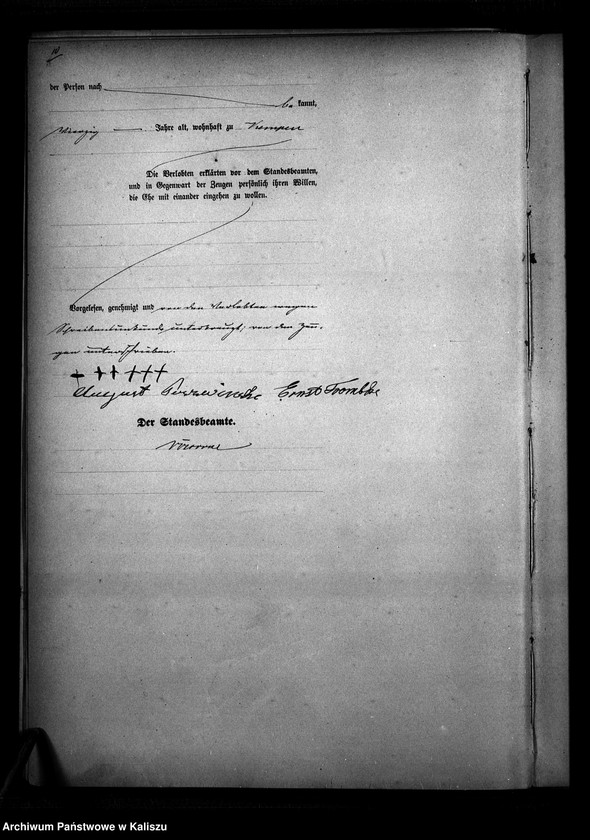 der Person nach
be kannt,
vierzig Jahre alt, wohnhaft zu Kempen
Die Verlobten erklärten vor dem Standesbeamten,
und in Gegenwart der Zeugen persönlich ihren Willen,
die Ehe mit einander eingehen zu wollen.
Vorgelesen, genehmigt und von den Verlobten wegen
Schreibensunkunde unterkreuzt, von den Zeu-
gen unterschrieben.
+ ++ +++
August Ernst
Der Standesbeamte.
Archiwum Państwowe w Kaliszu